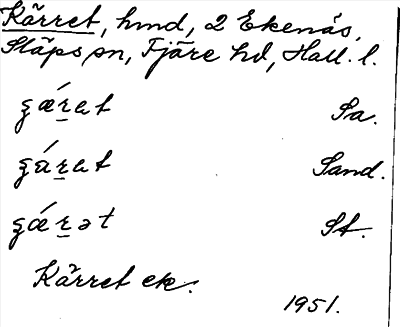 Kärret, hmd, 2 Ekenäs,
Släps sn, Fjäre hd, Hall. l.
ʂǽr̲at Sa.
ʂár̲at Sand.
ʂǽr̲ət St.
Kärret ek.
1951.